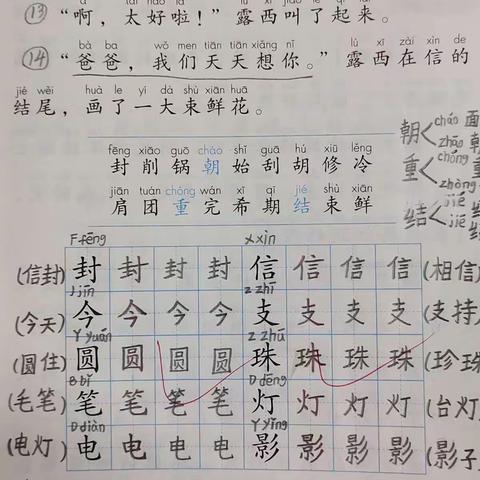 ⑬ “啊，太好啦！”露西叫了起来。
bà ba wǒ men tiān tiān xiǎng nǐ lù xī zài xìn de
⑭ “爸爸，我们天天想你。”露西在信的
jié wěi huà le yì dà shù xiān huā
结尾，画了一大束鲜花。
fēng xiāo guō cháo shǐ guā hú xiū lěng
封 削 锅 朝 始 刮 胡 修 冷
jiān tuán chóng wán xī qī jié shù xiān
肩 团 重 完 希 期 结 束 鲜
朝 cháo 面
zhāo 朝
重 chóng
zhòng
结 jié
jiē
F fēng X xìn
(信封) 封 封 封 封 信 信 信 信 (相信)
J jīn Z zhī
(今天) 今 今 今 今 支 支 支 支 (支持)
Y yuán Z zhū
(圆住) 圆 圆 圆 圆 珠 珠 珠 珠 (珍珠
B bǐ D dēng
(毛笔) 笔 笔 笔 笔 灯 灯 灯 灯 (台灯)
D diàn Y yǐng
(电灯) 电 电 电 电 影 影 影 影 (影子